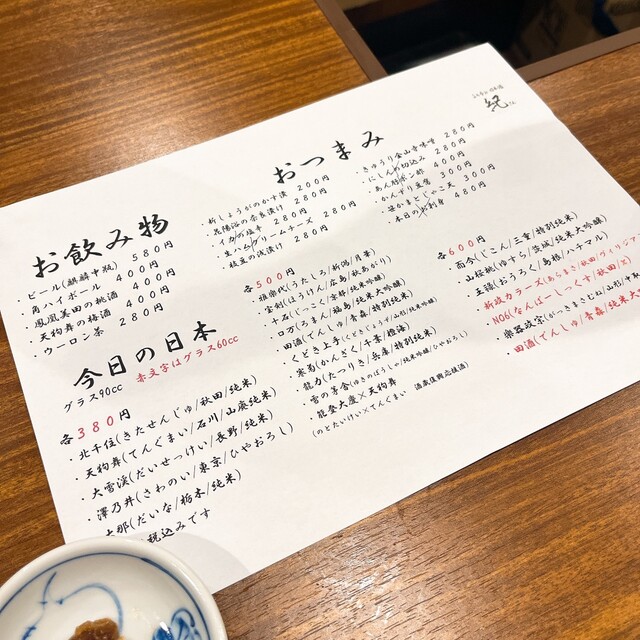 お飲み物
・ビール(麒麟中瓶) 580円
・角ハイボール 400円
・鳳凰美田の桃酒 400円
・天狗舞の梅酒 400円
・ウーロン茶 280円
おつまみ
・新しょうがのかす漬 200円
280円
280円 280円
・枝豆の浅漬け 280円
・きゅうり金山寺味噌 280円
・にしん切込み 280円
・あん肝ポン酢 400円
・かんずり豆富 300円
・笹かまじゃこ天 300円
・本日のお刺身 480円
紀
今日の日本
グラス90cc 赤文字はグラス60cc
各380円
・北千住(きたせんじゅ/秋田/純米)
・天狗舞(てんぐまい/石川/山廃純米)
・大雪渓(だいせっけい/長野/純米)
・澤乃井(さわのい/東京/ひやおろし)
・大那(だいな/栃木/純米)
税込みです
各500円
・雅楽代(うたしろ/新潟/月華)
・宝剣(ほうけん/広島/秋あがり)
・十石(じっこく/京都/純米吟醸)
・田酒(でんしゅ/青森/特別純米)
・くどき上手
・寒菊(かんぎく/千葉/
・龍力(たつりき/兵庫/特別純米)
・雪の茅舎
・能登大慶 天狗舞 酒蔵復興応援酒
(のとたいけい てんぐまい
各600円
・而今(じこん/三重/特別純米)
・山桜桃(ゆすら/茨城/純米大吟醸)
・王祿(おうろく/島根/ハチマル)
・新政カラーズ(あらまさ/秋田/ヴィリジアン
・NO6(なんばーしっくす/秋田/X)
・楽器政宗(がっきまさむね/山형/中
・田酒(でんしゅ/青森/純米大